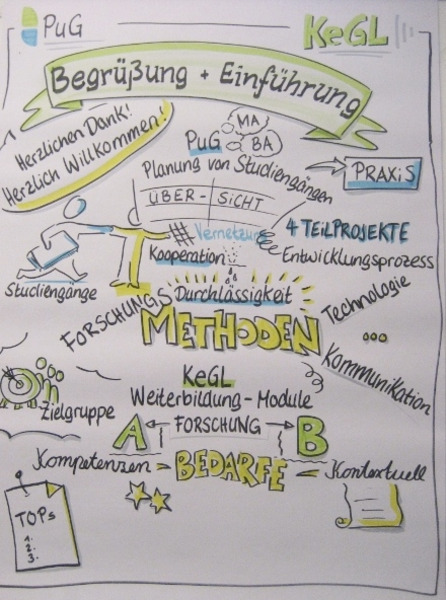 PuG
KeGL
Begrüßung + Einführung
Herzlichen Dank!
Herzlich Willkommen!
MA
PuG BA
Planung von Studiengängen
PRAXiS
ÜBER-SiCHT
Vernetzung
4 TEiLPROJEKTE
Kooperation
Entwicklungsprozess
Studiengänge
Durchlässigkeit
Technologie
FORSCHUNGS
METHODEN
Kommunikation
KeGL
Weiterbildung-Module
Zielgruppe
A FORSCHUNG B
Kompetenzen = BEDARFE = Kontextuell
TOPs
1.
2.
3.